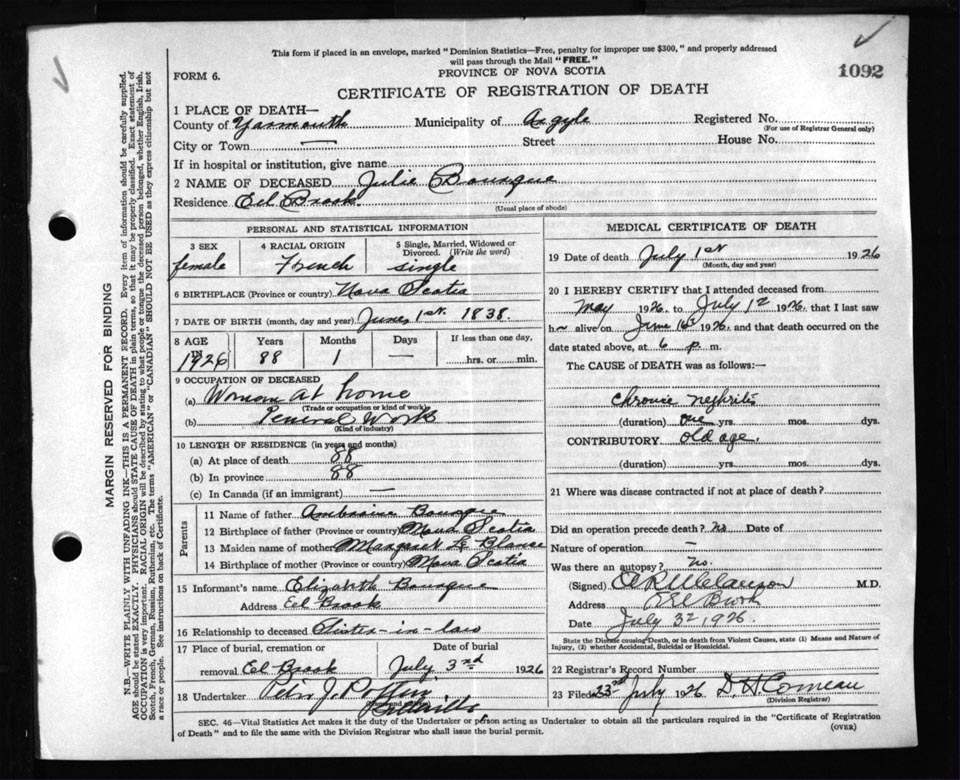 This form if placed in an envelope, marked "Dominion Statistics—Free, penalty for improper use $300," and properly addressed
will pass through the Mail "FREE."
1092
FORM 6.
PROVINCE OF NOVA SCOTIA
CERTIFICATE OF REGISTRATION OF DEATH
MARGIN RESERVED FOR BINDING
N.B.—WRITE PLAINLY WITH UNFADING INK—THIS IS A PERMANENT RECORD. Every item of information should be carefully supplied.
AGE should be stated EXACTLY. PHYSICIANS should STATE CAUSE OF DEATH in plain terms, so that it may be properly classified. Exact statement of
OCCUPATION is very important. RACIAL ORIGIN will be described by stating to what people or tongue the deceased person belonged, whether English, Irish,
Scotch, French, German, Russian, Ruthenian, etc. The terms "AMERICAN" or "CANADIAN" SHOULD NOT BE USED as they express citizenship but not
a race or people. See instructions on back of Certificate.
1 PLACE OF DEATH—
County of Yarmouth Municipality of Argyle Registered No.
(For use of Registrar General only)
City or Town — Street House No.
If in hospital or institution, give name
2 NAME OF DECEASED Julie Bourque
Residence Eel Brook
(Usual place of abode)
PERSONAL AND STATISTICAL INFORMATION
3 SEX
female
4 RACIAL ORIGIN
French
5 Single, Married, Widowed or
Divorced. (Write the word)
single
6 BIRTHPLACE (Province or country) Nova Scotia
7 DATE OF BIRTH (month, day and year) June 1st. 1838.
8 AGE Years Months Days If less than one day,
1926 88 1 — hrs. or min.
9 OCCUPATION OF DECEASED
(a) Woman at home
(Trade or occupation or kind of work)
(b) General Work
(Kind of industry)
10 LENGTH OF RESIDENCE (in years and months)
(a) At place of death 88
(b) In province 88
(c) In Canada (if an immigrant) —
Parents
11 Name of father Ambroise Bourque
12 Birthplace of father (Province or country) Nova Scotia
13 Maiden name of mother Margaret Le Blance
14 Birthplace of mother (Province or country) Nova Scotia
15 Informant's name Elizabeth Bourque
Address Eel Brook
16 Relationship to deceased Sister-in-law
17 Place of burial, cremation or Date of burial
removal Eel Brook July 3rd 1926
18 Undertaker J.
MEDICAL CERTIFICATE OF DEATH
19 Date of death July 1st 1926
(Month, day and year)
20 I HEREBY CERTIFY that I attended deceased from
May 1926. to July 1st 1926. that I last saw
h alive on June 16 1926. and that death occurred on
date stated above, at 6 p. m.
The CAUSE of DEATH was as follows:—
Chronic nephritis
(duration) one yrs. mos. dys.
CONTRIBUTORY old age.
(duration) yrs. mos. dys.
21 Where was disease contracted if not at place of death?
Did an operation precede death? no Date of
Nature of operation —
Was there an autopsy? no.
(Signed) M.D.
Address Eel Brook
Date July 3rd 1926.
State the Disease causing Death, or in death from Violent Causes, state (1) Means and Nature of
Injury, (2) whether Accidental, Suicidal or Homicidal.
22 Registrar's Record Number
23 Filed 23rd July 1926 D. H Comeau
(Division Registrar)
SEC. 46—Vital Statistics Act makes it the duty of the Undertaker or person acting as Undertaker to obtain all the particulars required in the "Certificate of Registration
of Death" and to file the same with the Division Registrar who shall issue the burial permit.
(OVER)